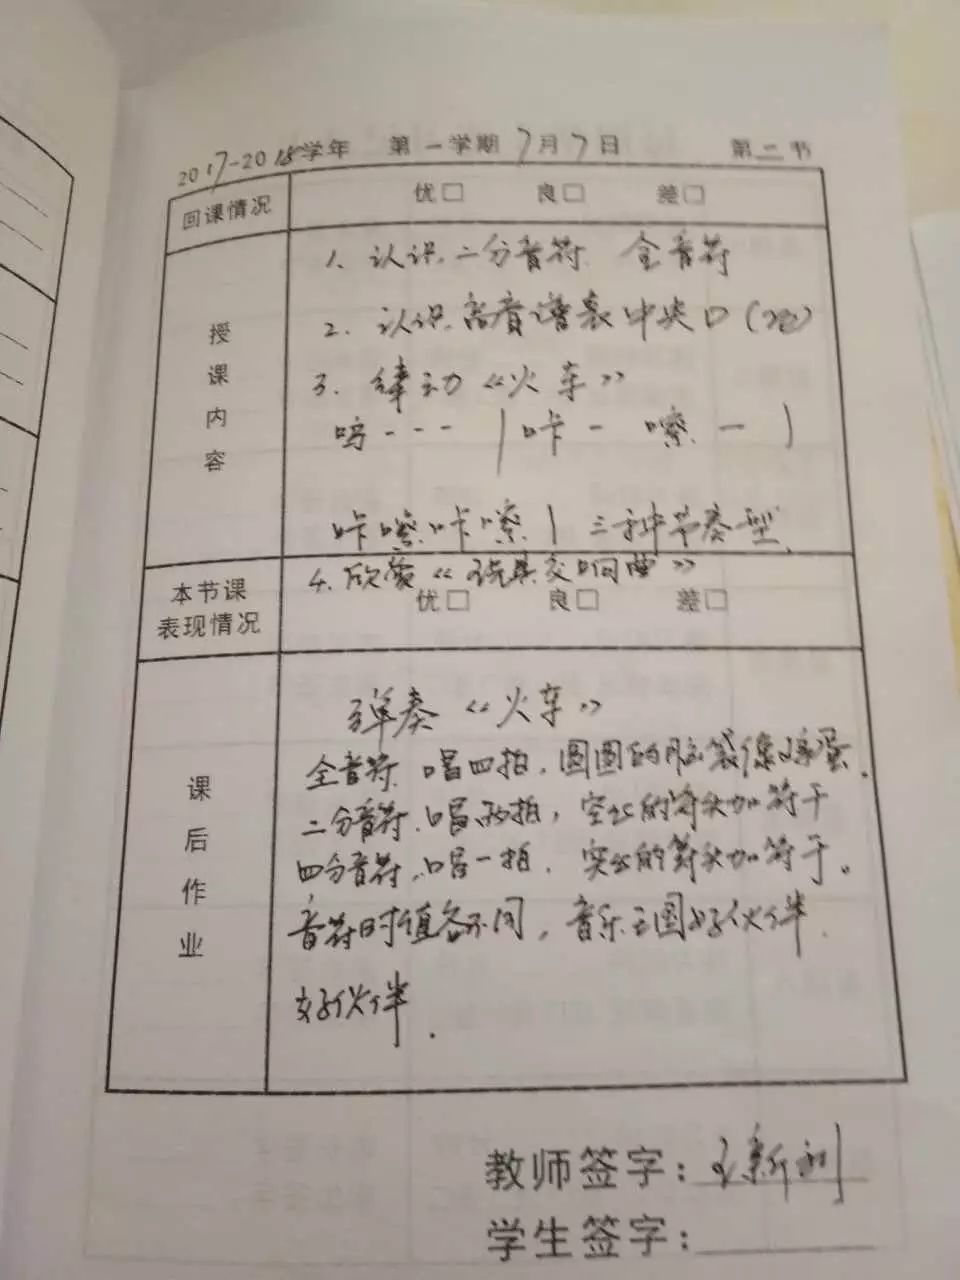 2017-2018学年 第一学期 7月7日 第二节
回课情况 优□ 良□ 差□
授课内容
1. 认识二分音符 全音符
2. 认识高音谱表中央
3. 律动《火车》
呜--- | 咔一 嚓一 |
咔嚓咔嚓 | 三种节奏型
4. 欣赏《玩具交响曲》
本节课表现情况 优□ 良□ 差□
课后作业
弹奏《火车》
全音符 唱四拍，圆圆的脑袋像鸭蛋.
二分音符，唱两拍，空心的符头加符干
四分音符，唱一拍，实心的符头加符干。
音符时值各不同，音乐王国好伙伴.
好伙伴.
教师签字: 王新利
学生签字: